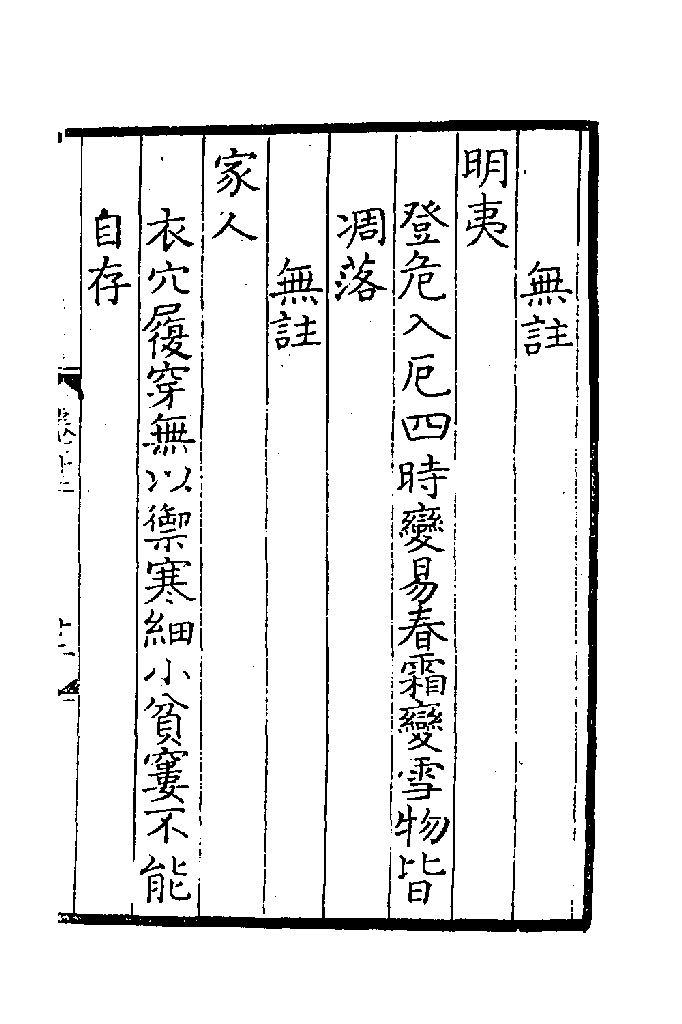 無註
明夷
登危入厄四時變易春霜變雪物皆
凋落
無註
家人
衣穴履穿無以禦寒細小貧窶不能
自存